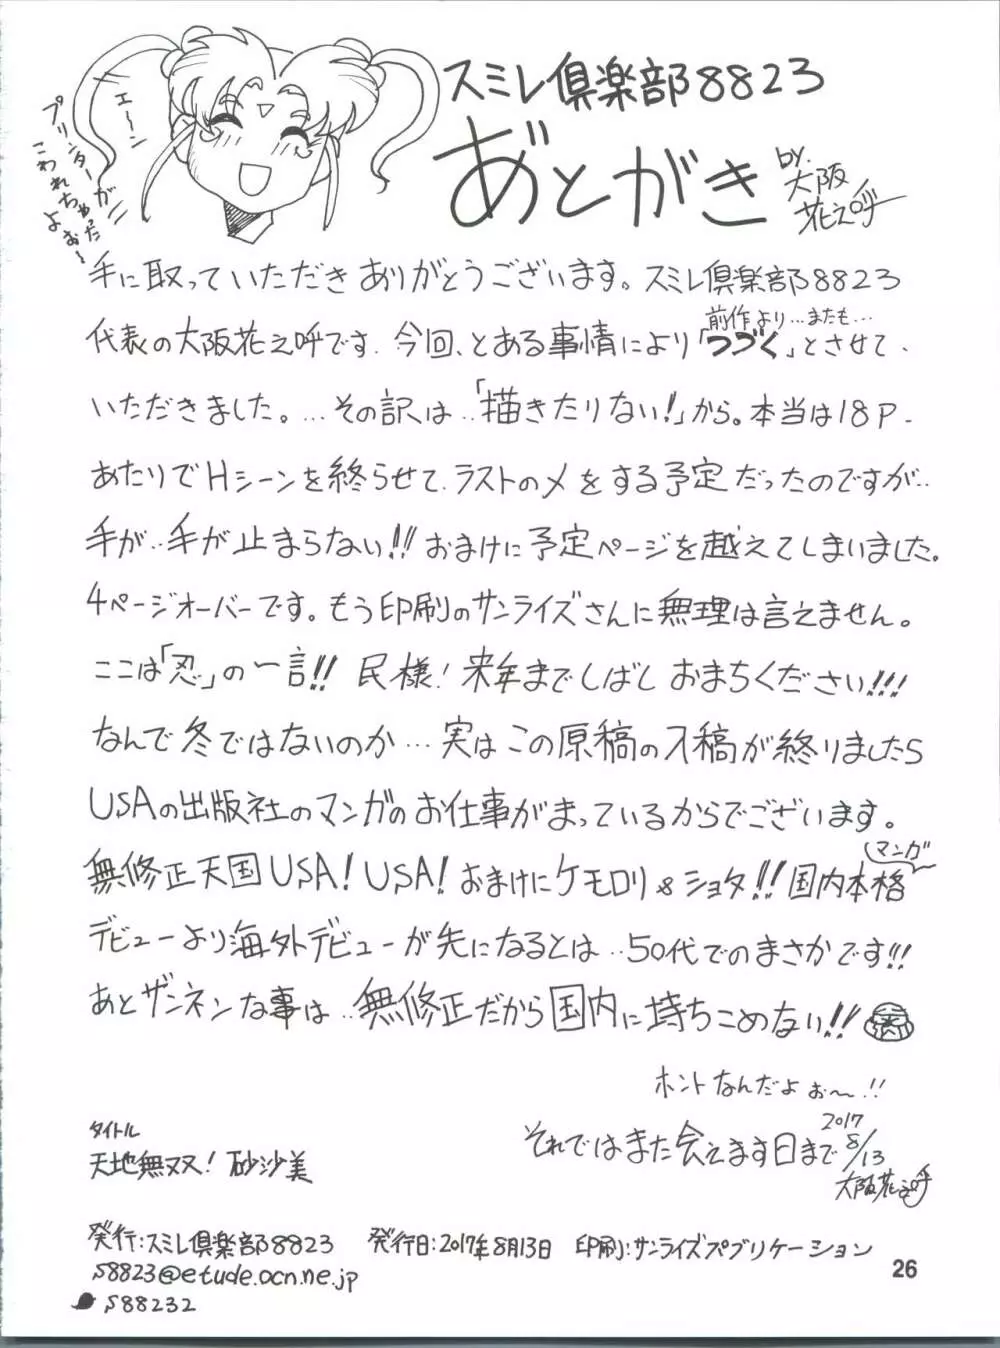 スミレ倶楽部8823
あとがき
by.大阪花之呼
エ〜ン
プリンターが
こわれちゃった
よぉ〜
手に取っていただきありがとうございます。スミレ倶楽部8823
代表の大阪花之呼です。今回、とある事情により「つづく」とさせて、
前作より…またも…
いただきました。…その訳は‥「描きたりない!」から。本当は18P-
あたりでHシーンを終らせて、ラストの〆をする予定だったのですが‥
手が‥手が止まらない!!おまけに予定ページを越えてしまいました。
4ページオーバーです。もう印刷のサンライズさんに無理は言えません。
ここは「忍」の一言!!民様!来年までしばしおまちください!!!
なんで冬ではないのか…実はこの原稿の入稿が終りましたら
USAの出版社のマンガのお仕事がまっているからでございます。
無修正天国USA!USA!おまけにケモロリ&ショタ!!国内本格
マンガ
デビューより海外デビューが先になるとは‥50代でのまさかです!!
あとザンネンな事は‥無修正だから国内に持ちこめない!!
ホントなんだよぉ〜!!
それではまた会えます日まで
2017
8/13
大阪花之呼
タイトル
天地無双!砂沙美
発行:スミレ倶楽部8823 発行日:2017年8月13日 印刷:サンライズパブリケーション
S8823@etude.ocn.ne.jp
S88232
26